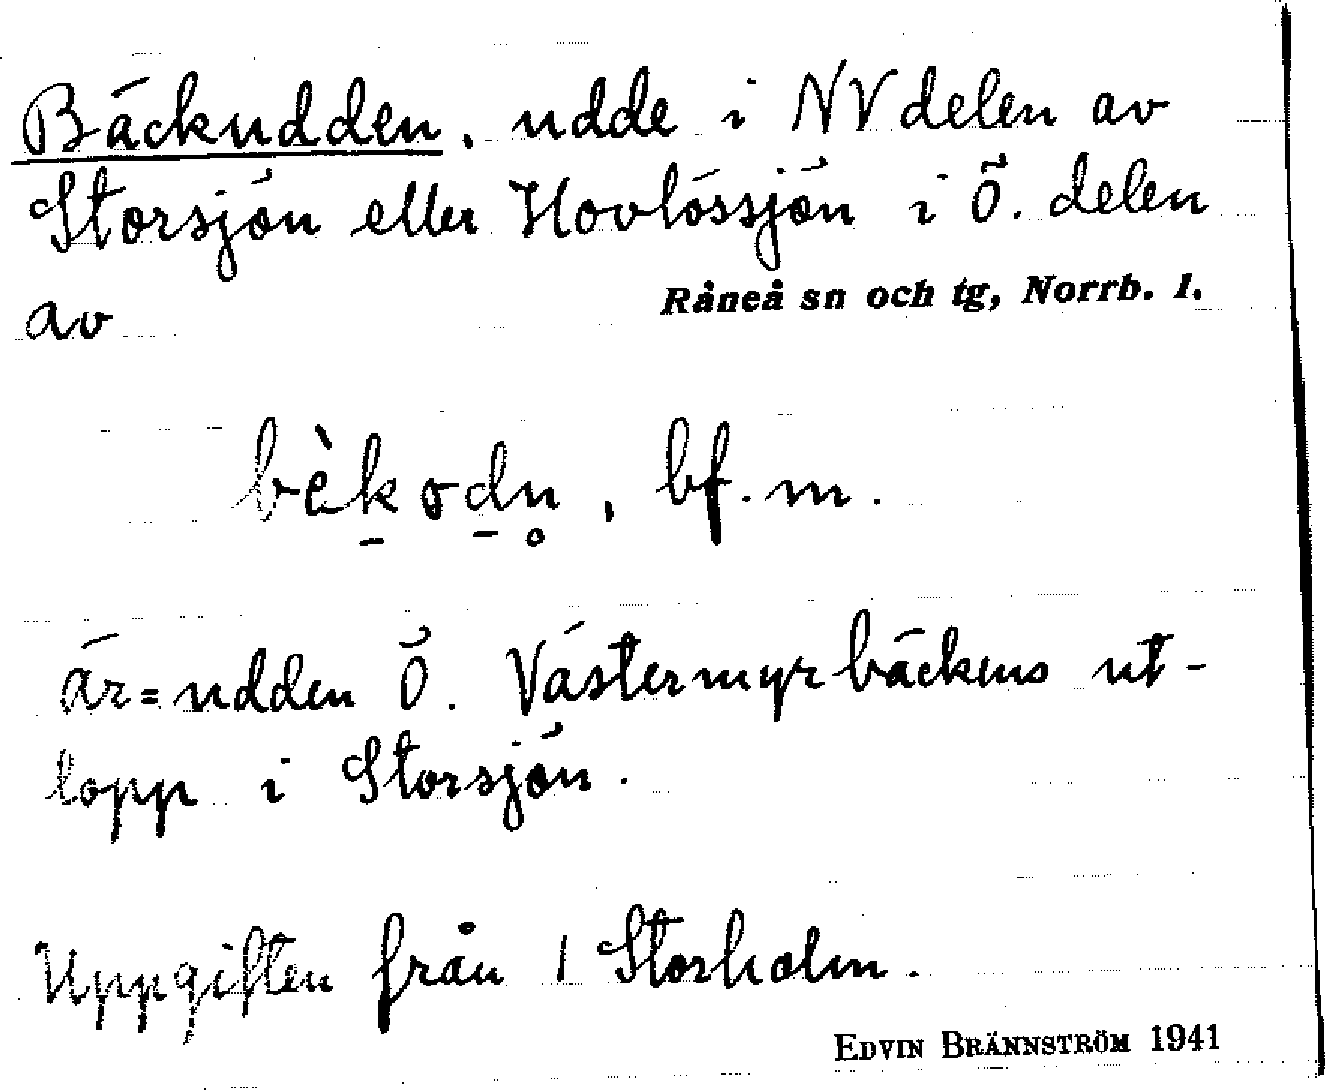 Bäckudden, udde i NV delen av
Storsjön eller Hovlössjön i Ö. delen
av Råneå sn och tg, Norrb. l.
bèk̠ɤd̠n̥, bf. m.
är=udden Ö. Västermyrbäckens ut-
lopp i Storsjön.
Uppgiften från 1 Storholm.
EDVIN BRÄNNSTRÖM 1941